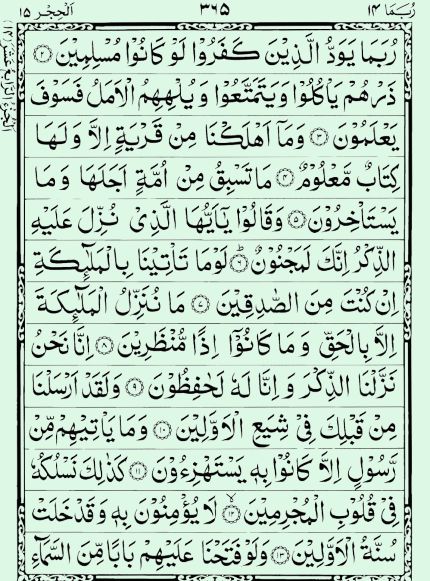 رُبَمَا ١٤
٣٦٥
اَلْحِجْر ١٥
رُبَمَا يَوَدُّ الَّذِيْنَ كَفَرُوْا لَوْ كَانُوْا مُسْلِمِيْنَ ﴿۲﴾
ذَرْهُمْ يَاْكُلُوْا وَيَتَمَتَّعُوْا وَيُلْهِهِمُ الْاَمَلُ فَسَوْفَ
يَعْلَمُوْنَ ﴿۳﴾ وَمَاۤ اَهْلَكْنَا مِنْ قَرْيَةٍ اِلَّا وَلَهَا
كِتَابٌ مَّعْلُوْمٌ ﴿۴﴾ مَا تَسْبِقُ مِنْ اُمَّةٍ اَجَلَهَا وَمَا
يَسْتَاْخِرُوْنَ ﴿۵﴾ وَقَالُوْا يٰۤاَيُّهَا الَّذِيْ نُزِّلَ عَلَيْهِ
الذِّكْرُ اِنَّكَ لَمَجْنُوْنٌ ﴿۶﴾ لَوْمَا تَاْتِيْنَا بِالْمَلٰٓئِكَةِ
اِنْ كُنْتَ مِنَ الصّٰدِقِيْنَ ﴿۷﴾ مَا نُنَزِّلُ الْمَلٰٓئِكَةَ
اِلَّا بِالْحَقِّ وَمَا كَانُوْۤا اِذًا مُّنْظَرِيْنَ ﴿۸﴾ اِنَّا نَحْنُ
نَزَّلْنَا الذِّكْرَ وَاِنَّا لَهٗ لَحٰفِظُوْنَ ﴿۹﴾ وَلَقَدْ اَرْسَلْنَا
مِنْ قَبْلِكَ فِيْ شِيَعِ الْاَوَّلِيْنَ ﴿۱۰﴾ وَمَا يَاْتِيْهِمْ مِّنْ
رَّسُوْلٍ اِلَّا كَانُوْا بِهٖ يَسْتَهْزِءُوْنَ ﴿۱۱﴾ كَذٰلِكَ نَسْلُكُهٗ
فِيْ قُلُوْبِ الْمُجْرِمِيْنَ ﴿۱۲﴾ لَا يُؤْمِنُوْنَ بِهٖ وَقَدْ خَلَتْ
سُنَّةُ الْاَوَّلِيْنَ ﴿۱۳﴾ وَلَوْ فَتَحْنَا عَلَيْهِمْ بَابًا مِّنَ السَّمَآءِ